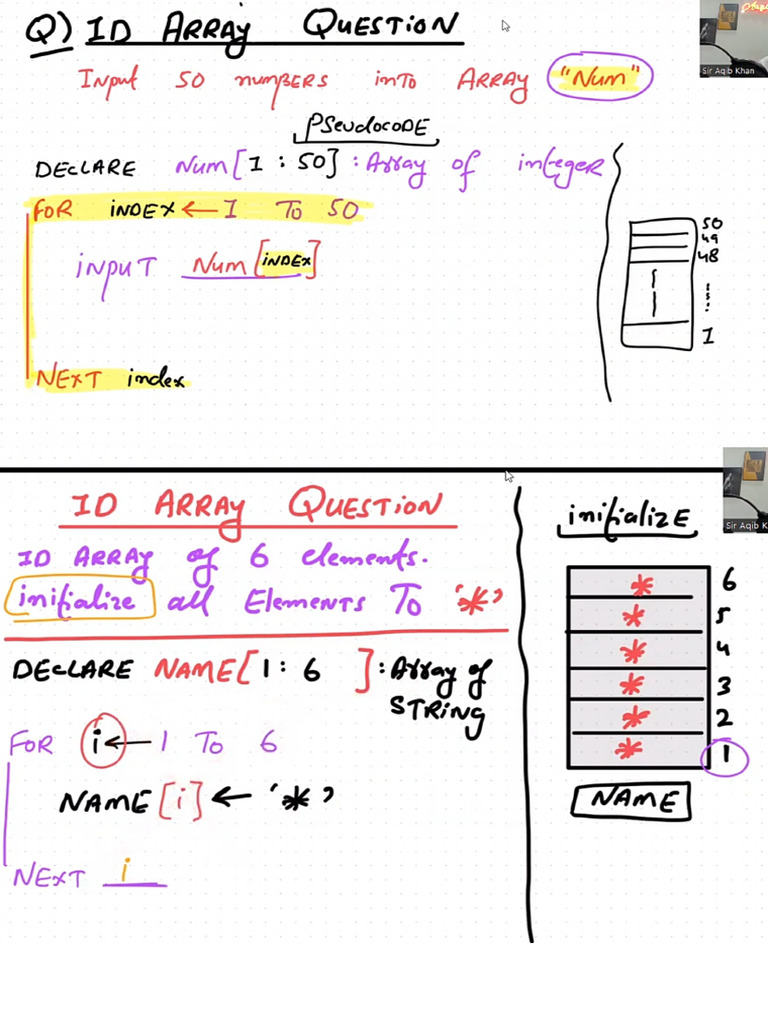 Q) 1D ARRAY QUESTION
Input 50 numbers into ARRAY "Num"
Sir Aqib Khan
PSeudocoDE
DECLARE Num[1 : 50] : Array of integer
FOR iNDEX ← 1 To 50
50
49
48
inpuT Num[iNDEX]
1
NEXT index
1D ARRAY QUESTION
initialize
Sir Aqib K
1D ARRAY of 6 elements.
initialize all Elements To '*'
* 6
* 5
* 4
* 3
* 2
* 1
DECLARE NAME[1: 6 ]: Array of
STRING
FOR i ← 1 To 6
NAME[i] ← '*'
NAME
NEXT i